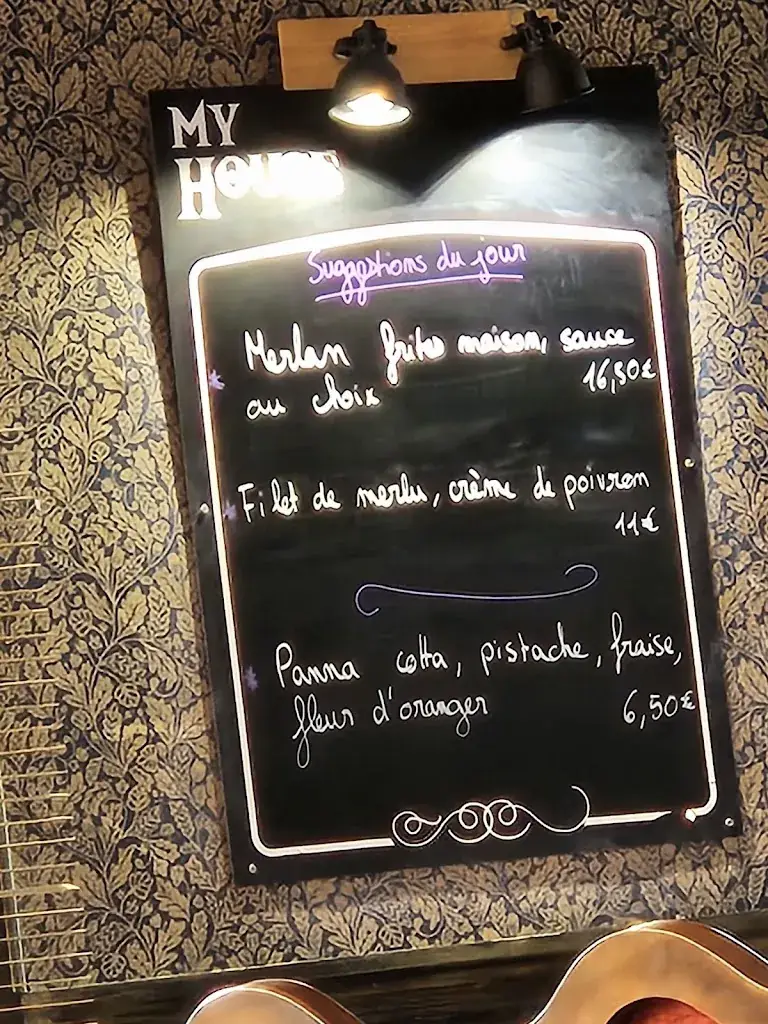 MY
HOUSE
Suggestions du jour
* Merlan frites maison, sauce
au choix 16,50€
* Filet de merlu, crème de poivron
11€
* Panna cotta, pistache, fraise,
fleur d'oranger 6,50€